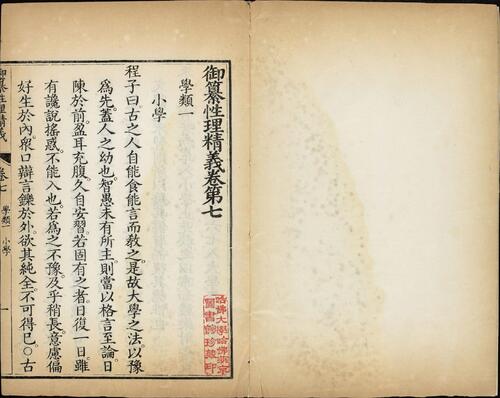 御纂性理精義卷第七
學類一
小學
程子曰古之人自能食能言而敎之是故大學之法以豫
爲先蓋人之幼也智愚未有所主則當以格言至論日
陳於前盈耳充腹久自安習若固有之者日復一日雖
有讒說搖惑不能入也若爲之不豫及乎稍長意慮偏
好生於內衆口辯言鑠於外欲其純全不可得已○古
御纂性理精義
卷七
學類一 小學
一
哈佛大學哈佛燕京
圖書館珍藏印